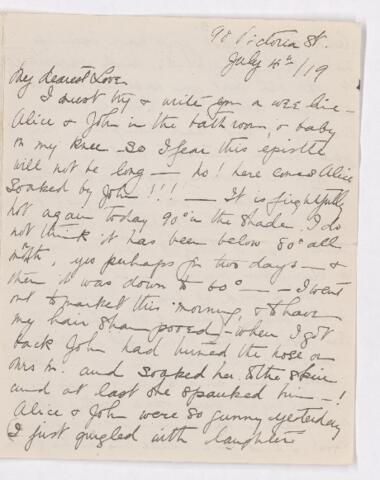 98 Victoria St.
July 15th/19
My dearest Love
I must try & write you a wee line -
Alice & John in the bathroom, & baby
on my knee - so I fear this epistle
will not be long - No! here comes Alice
soaked by John!!! - It is frightfully
hot again today 90° in the shade. I do
not think it has been below 80° all
month, yes perhaps for two days - &
then it was down to 60° - - I went
out to market this morning, & to have
my hair shampooed - when I got
back John had turned the hose on
Mrs M. and soaked her to the skin
and at last she spanked him - !
Alice & John were so funny yesterday
I just gurgled with laughter